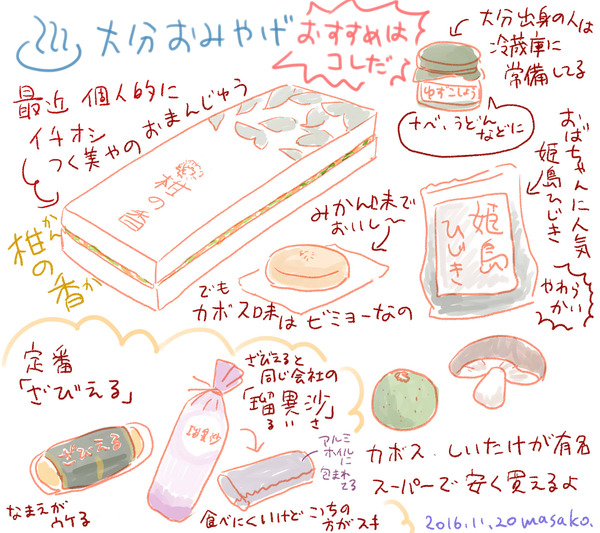 大分おみやげ
おすすめは
コレだ♪
大分出身の人は
冷蔵庫に
常備してる
ゆずこしょう
ナベ、うどん
などに
最近 個人的に
イチオシ
つく美やのおまんじゅう
柑の香
かん
柑の
香
か
みかん味で
おいし〜
でも
カボス味はビミョーなの
おばちゃんに人気
姫島ひじき
姫島
ひじき
やわらかい
定番
「ざびえる」
ざびえる
なまえが
ウケる
ざびえると
同じ会社の
「瑠異沙」
るいさ
瑠異沙
アルミ
ホイルに
包まれ
てる
食べにくいけどこっちの
方がスキ
カボス、しいたけが有名
スーパーで安く買えるよ
2016.11.20 masako.